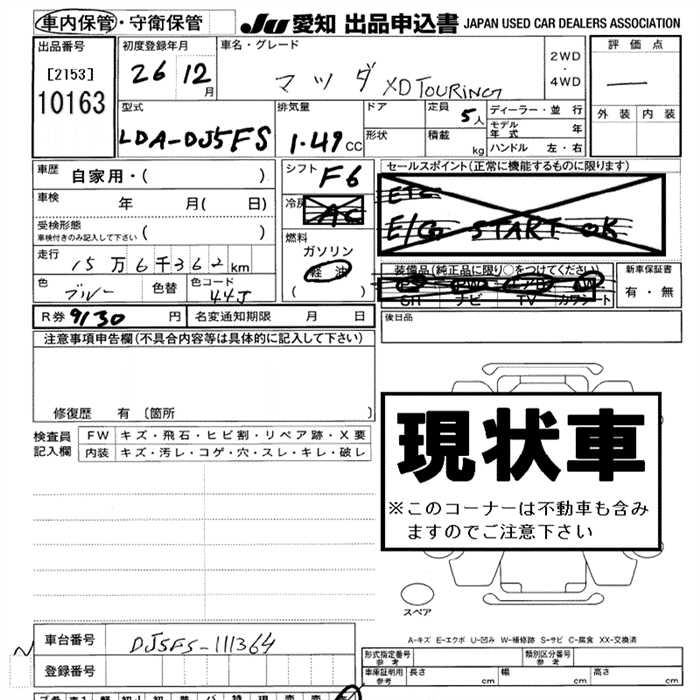 車内保管・守衛保管 JU 愛知 出品申込書 JAPAN USED CAR DEALERS ASSOCIATION
出品番号 初度登録年月 車名・グレード 2WD・4WD 評価点
[2153] 26 12月 マツダ XD TOURING ー
10163 型式 排気量 ドア 定員 5人 ディーラー・並行 外装 内装
LDA-DJ5FS 1.49cc 形状 積載 kg モデル年式 年
ハンドル 左・右
車歴 自家用・( ) シフト F6 セールスポイント(正常に機能するものに限ります)
車検 年 月( 日) 冷房 AC ETC
受検形態 ( ) E/Co START OK
車検付きのみ記入して下さい 燃料
走行 15万6千362km ガソリン
軽油 装備品(純正品に限り○をつけてください) 新車保証書
色 ブルー 色替 色コード 44J ( ) SR ナビ TV カワシート 有・無
R券 9130円 名変通知期限 月 日 後日品
注意事項申告欄(不具合内容等は具体的に記入して下さい)
修復歴 有 〔箇所 〕
現状車
※このコーナーは不動車も含み
ますのでご注意下さい
検査員 FW キズ・飛石・ヒビ割・リペア跡・X要
記入欄 内装 キズ・汚レ・コゲ・穴・スレ・キレ・破レ
スペア
A-キズ E-エクボ U-凹み W-補修跡 S-サビ C-腐食 XX-交換済
車台番号 DJ5FS-111364
登録番号
形式指定番号 参考 類別区分番号 参考
車庫証明用 参考 長さ cm 幅 cm 高さ cm